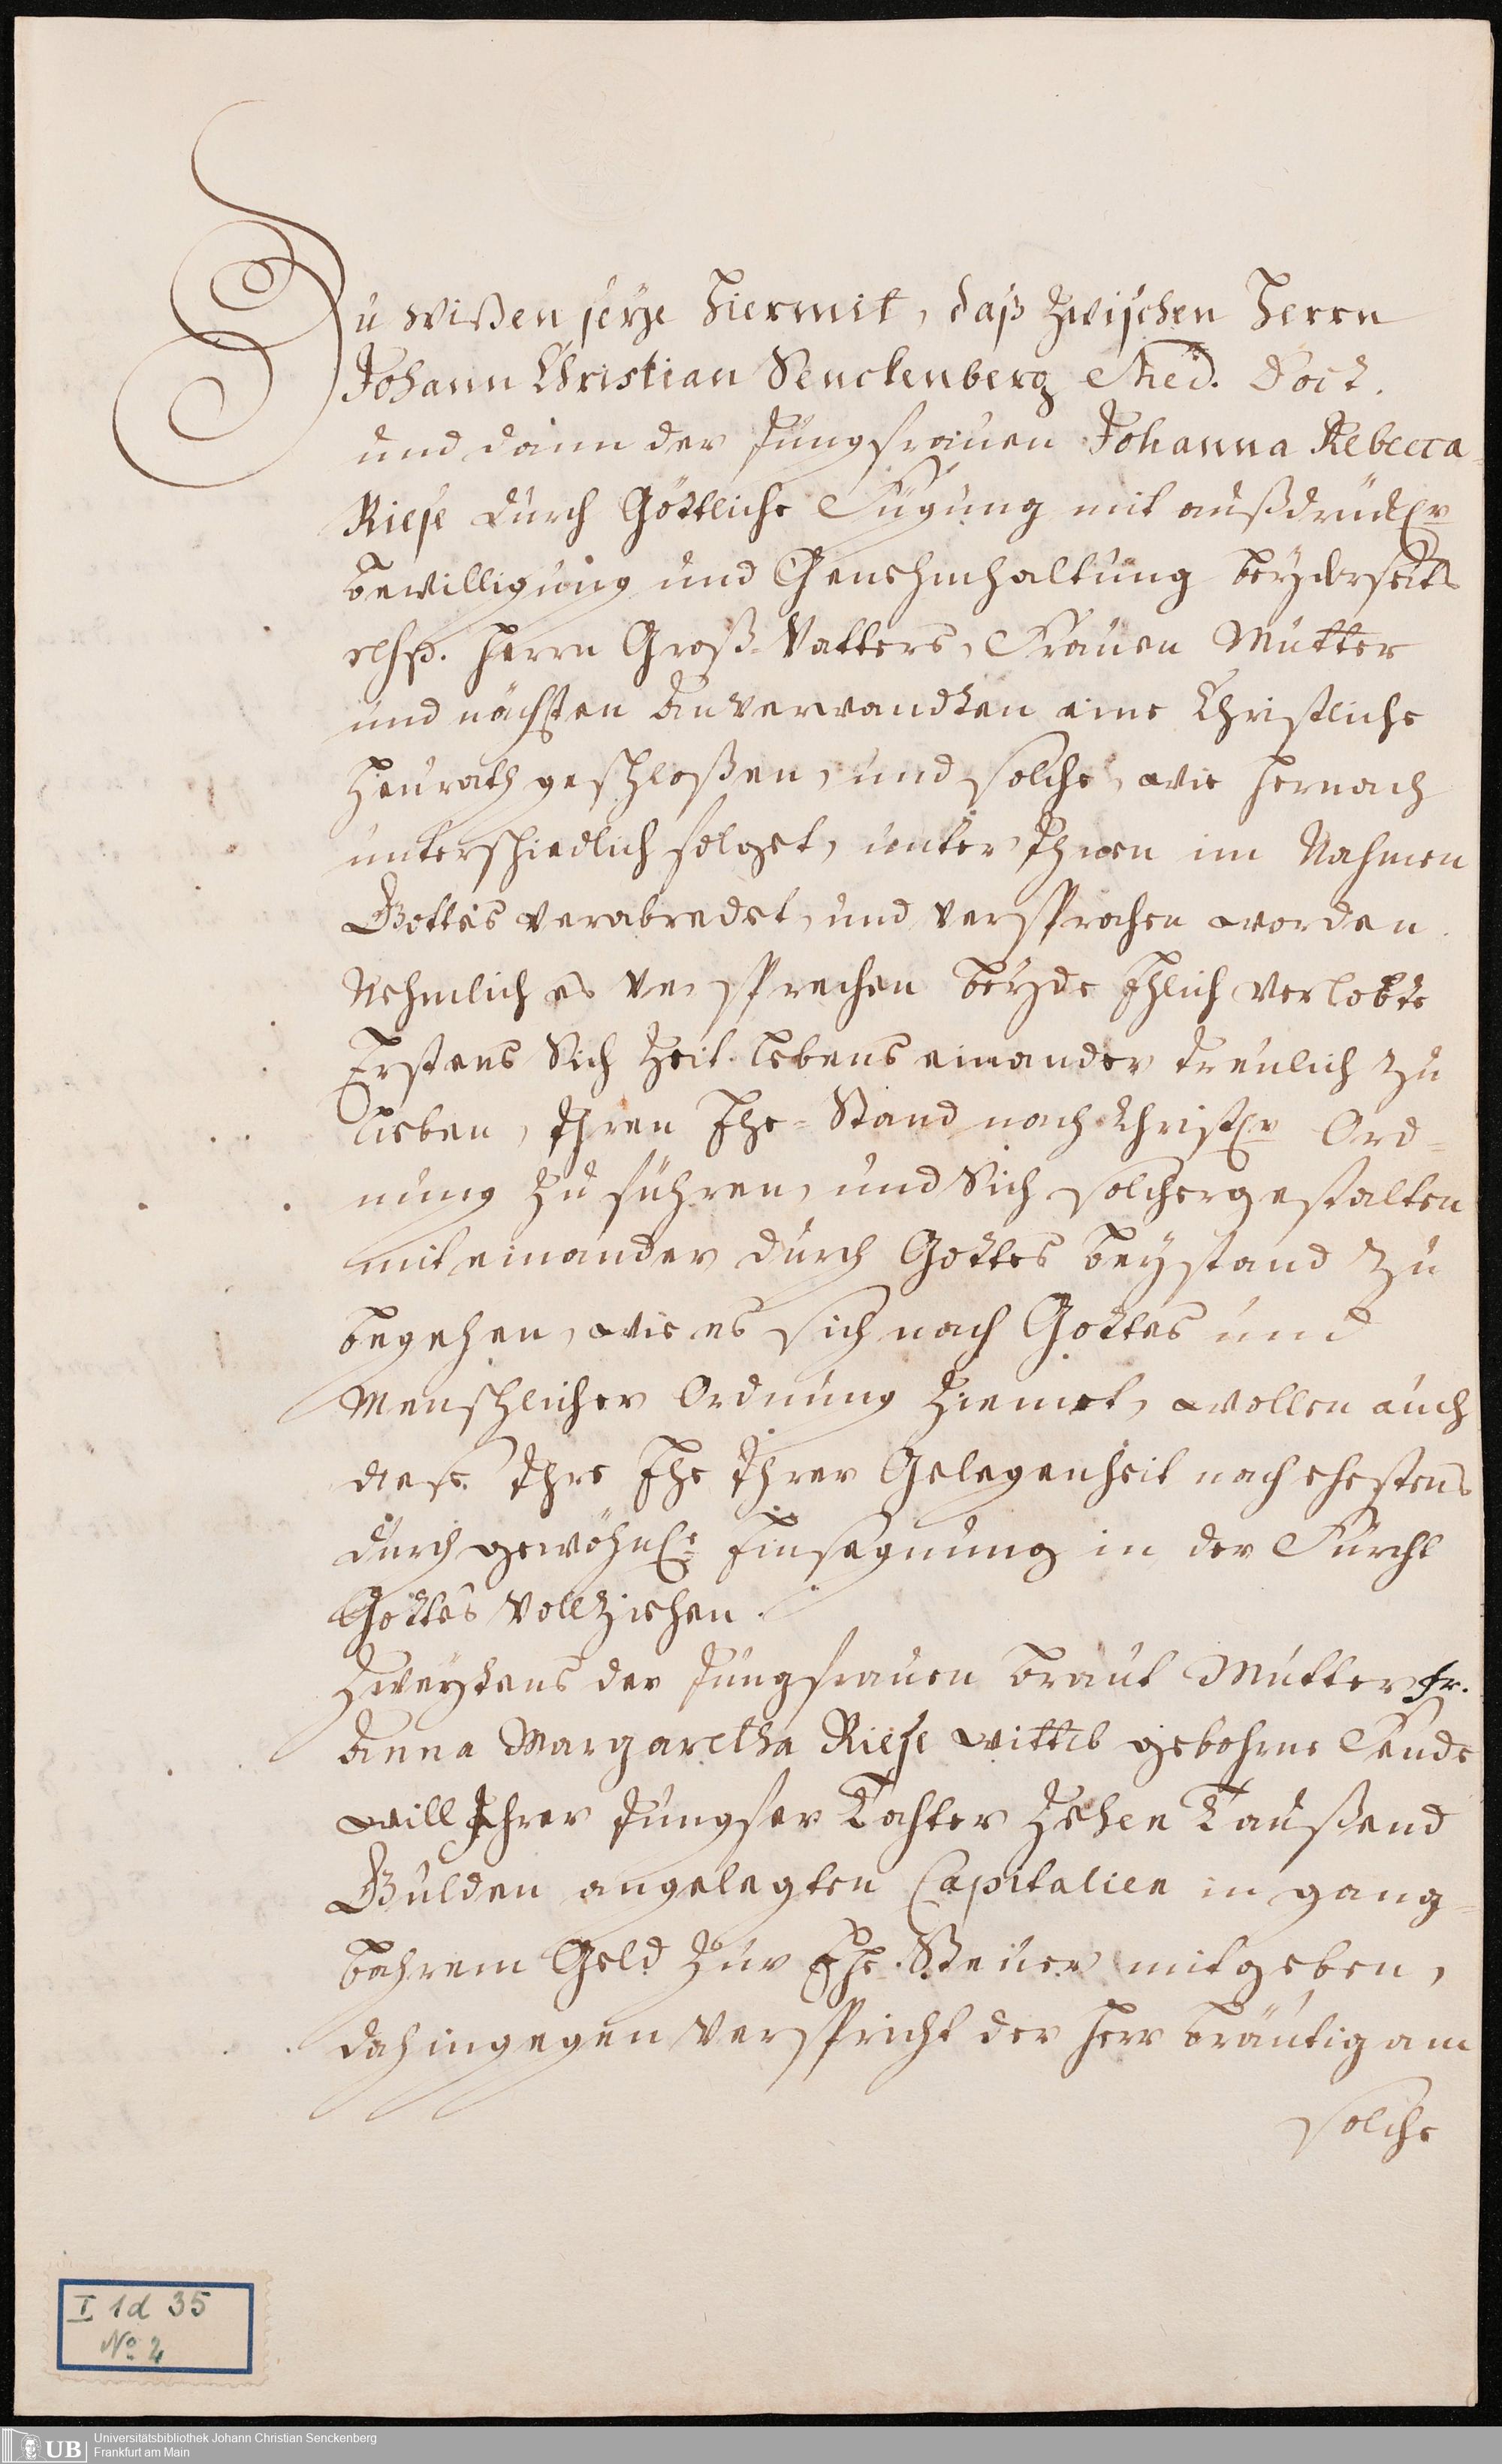 Zu wißen seye hiermit, daß zwischen Herrn
Johann Christian Senckenberg Med. Doct.
und dann der Jungfrauen Johanna Rebecca
Riese durch Göttliche Fügung mit außdrückl.r
Bewilligung und Genehmhaltung beyderseits
resp. Herrn Groß-Vatters, Frauen Mutter
und nächsten Anverwandten eine Christliche
Heurath geschloßen, und solche, wie hernach
unterschiedlich folget, unter Ihnen im Nahmen
Gottes verabredet, und versprochen worden.
Nehmlich es versprechen beyde Ehlich Verlobte
Erstens Sich Zeit Lebens einander treulich zu
lieben, Ihren Ehe-Stand nach Christl.r Ord-
nung zu führen, und Sich solchergestalten
miteinander durch Gottes Beystand zu
begehen, wie es sich nach Gottes und
Menschlicher Ordnung ziemet, wollen auch
diese Ihre Ehe Ihrer Gelegenheit nach ehestens
durch gewöhnl.e Einsegnung in der Furcht
Gottes vollziehen.
Zweytens der Jungfrauen Braut Mutter Fr.
Anna Margaretha Riese Wittib gebohrne Fende
will Ihrer Jungfer Tochter Zehen Taußend
Gulden angelegten Capitalien in gang-
bahrem Geld zur Ehe-Steuer mitgeben,
dahingegen verspricht der Herr Bräutigam
solche
I 1d 35
No 2
UB
Universitätsbibliothek Johann Christian Senckenberg
Frankfurt am Main